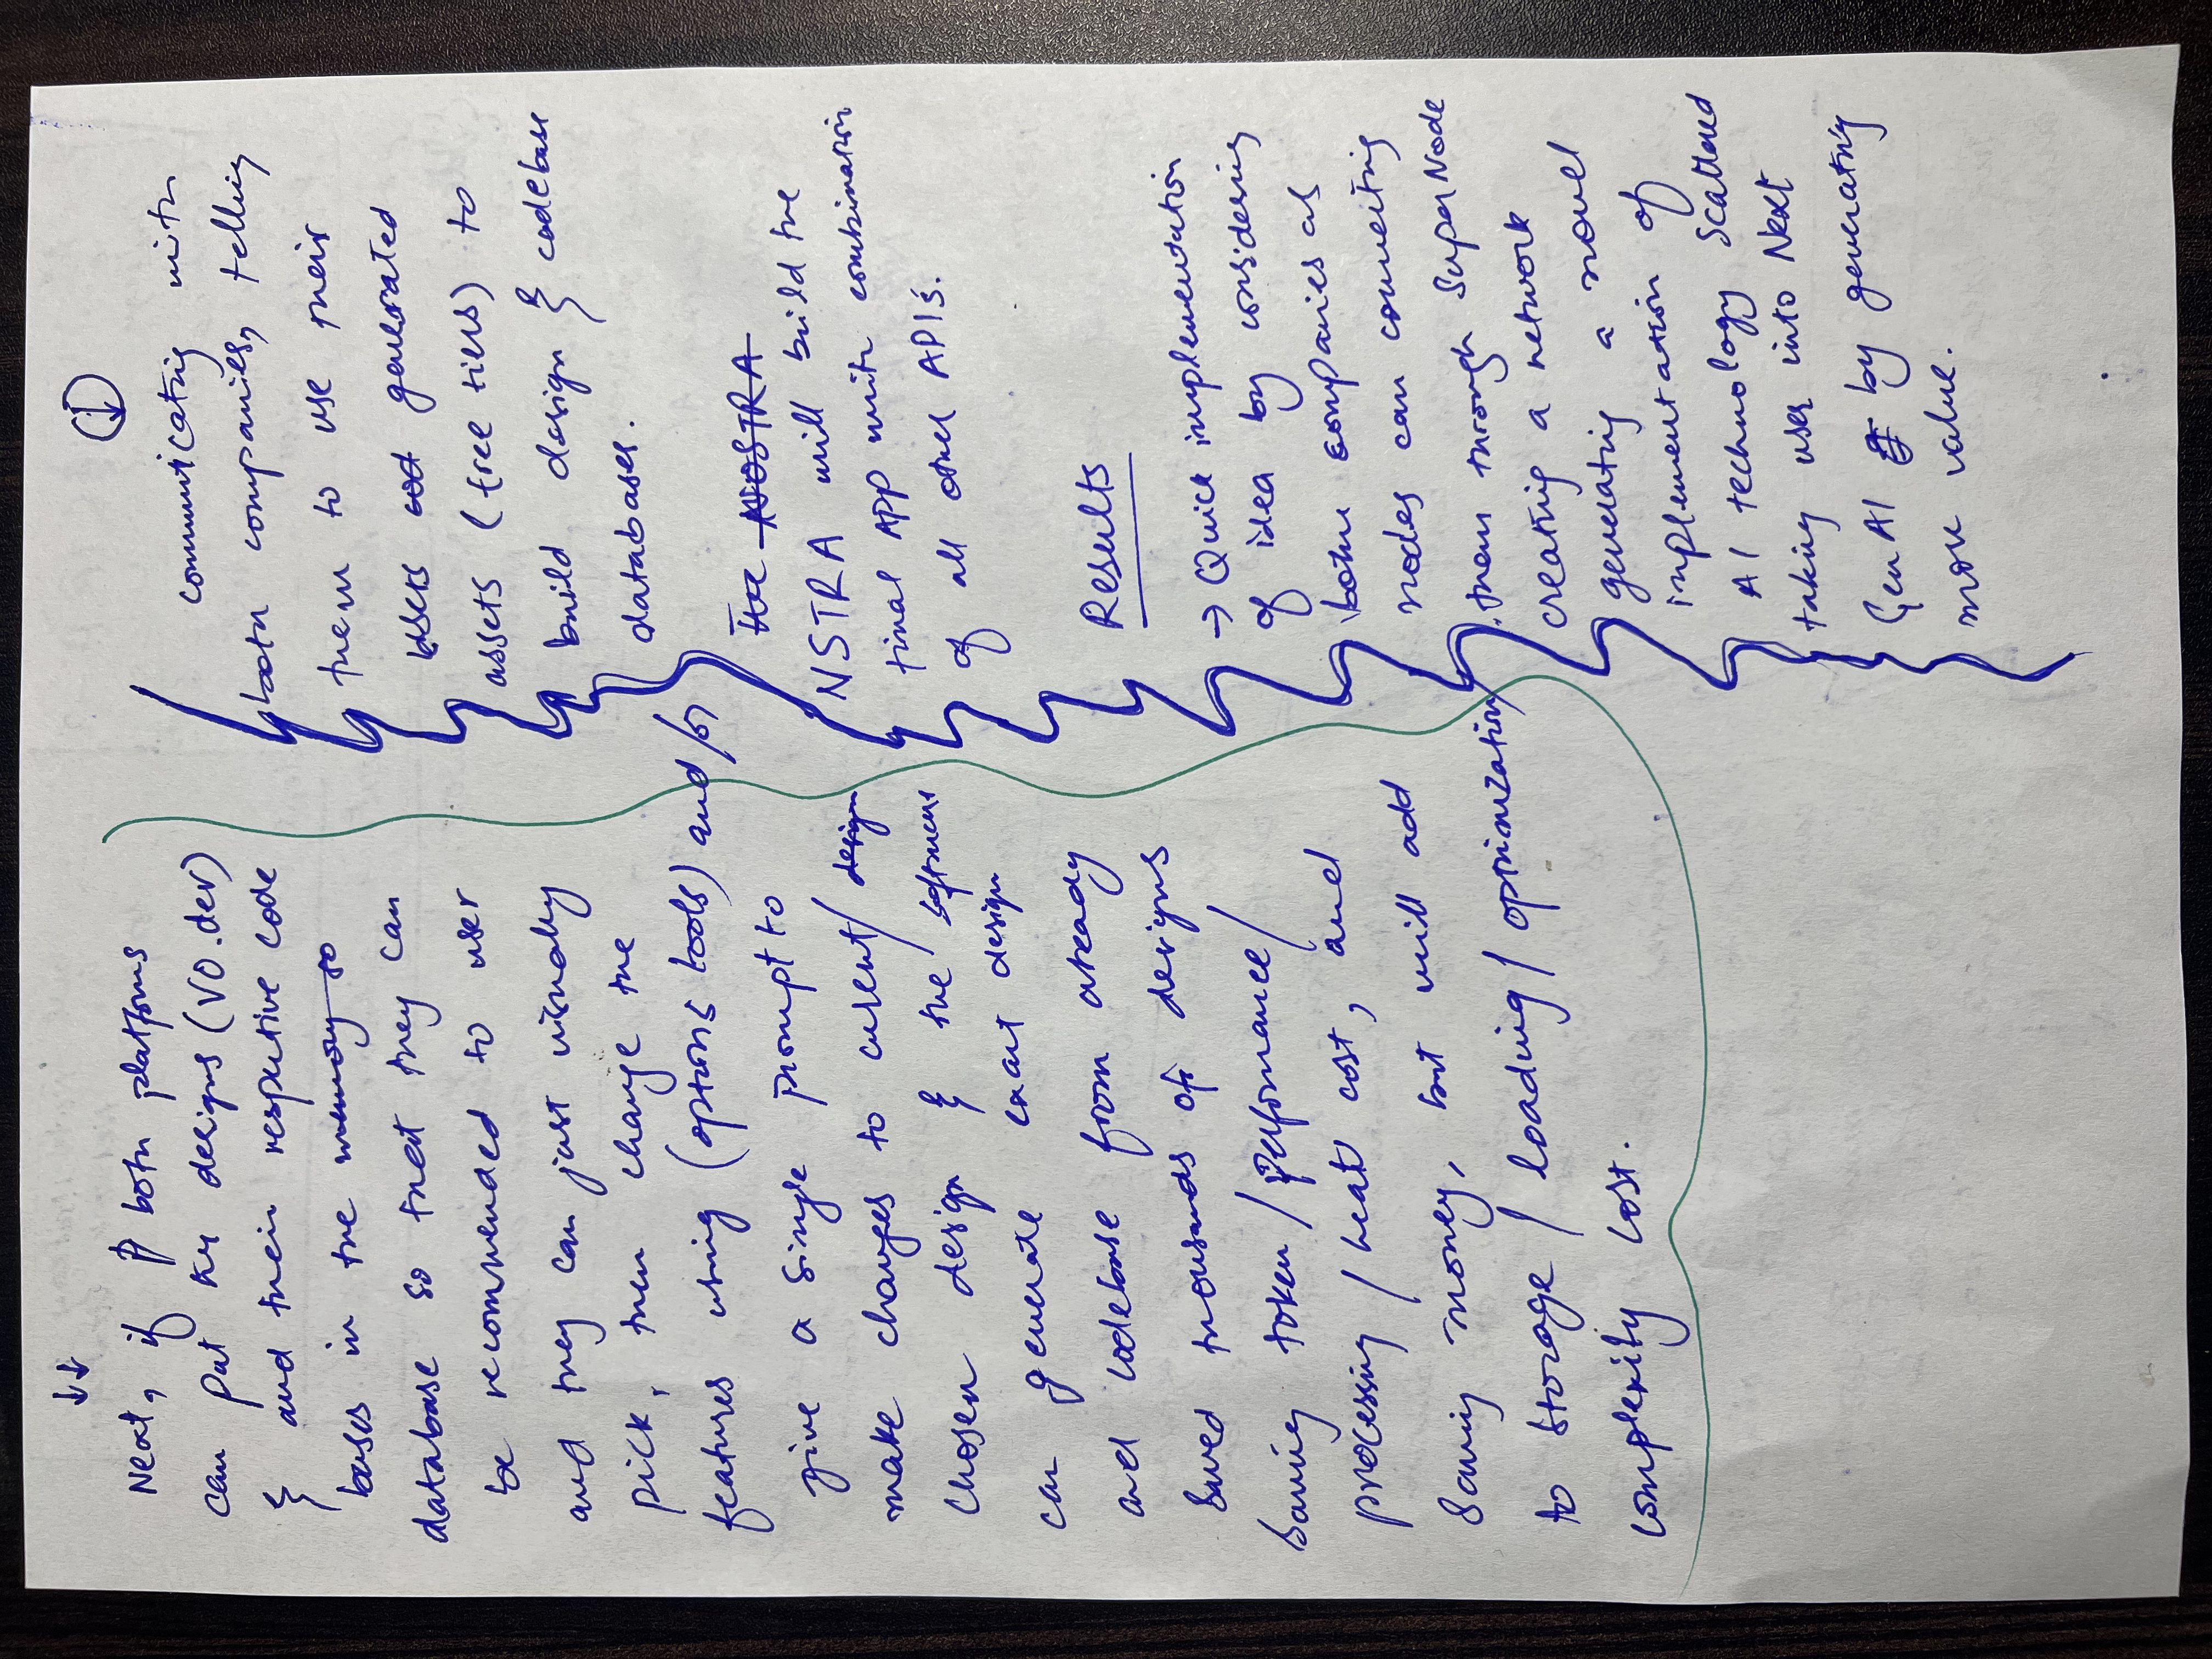 ↓↓
Next, if both platforms
can put designs (V0.dev)
& and their respective code
bases in the memory so
database so that they can
be recommended to user
and they can just visually
pick, then change the
features using (options tools) and/or
give a single prompt to
make changes to current/ design
chosen design & the software
can generate exact design
and codebase from already
saved thousands of designs
saving token / performance /
processing / heat cost, and
saving money, but will add
to storage / loading / optimization
complexity cost.
↓
communicating with
both companies, telling
them to use their
users generated
assets (free tiers) to
build design & codebase
databases.
The NOSTRA
NSTRA will build the
final APP with combination
of all other API's.
Results
→ Quick implementation
of idea by considering
both companies as
nodes can connecting
them through SuperNode
creating a network
generating a novel
implementation of
AI technology scattered
taking user into Next
Gen AI by generating
more value.